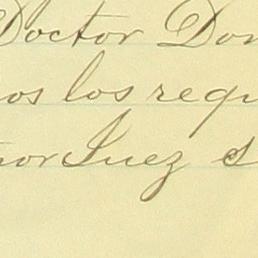 Doctor Don
os los requ
nor Juez s